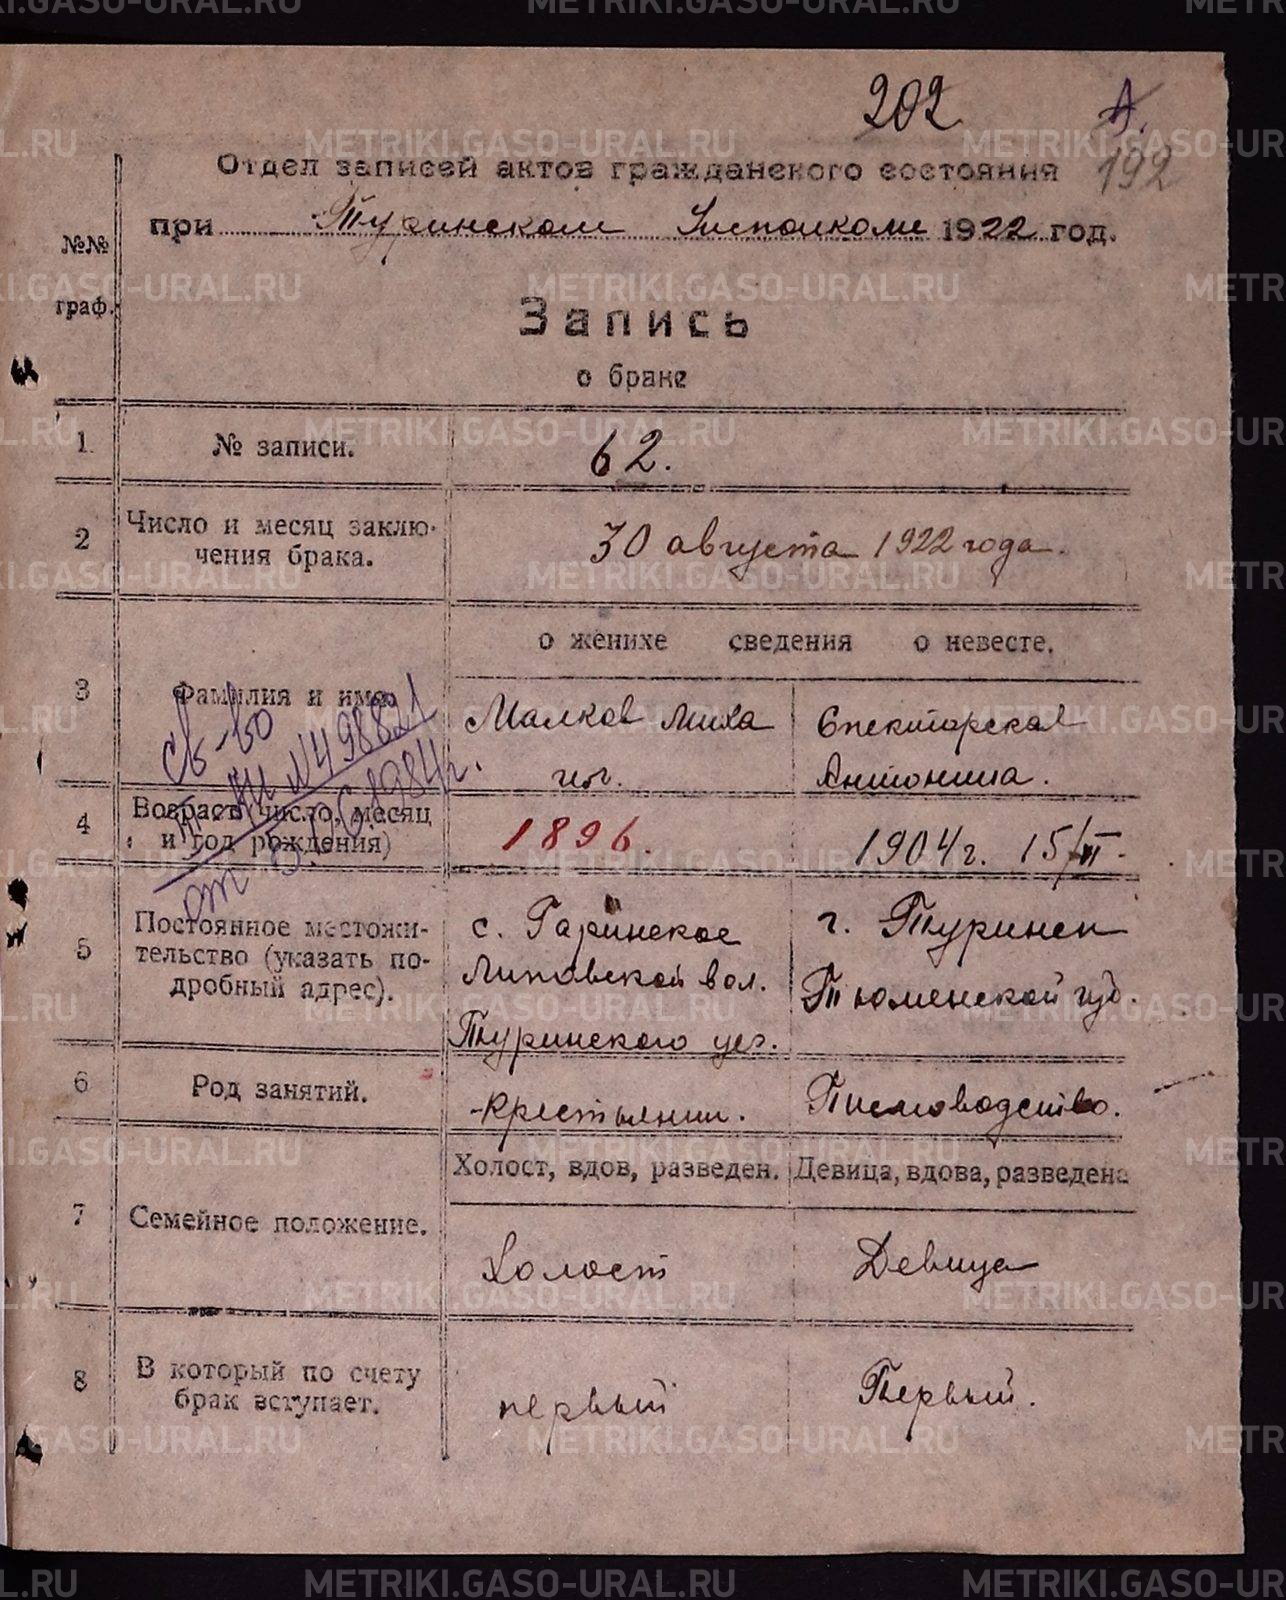 202
192
Отдел записей актов гражданского состояния
при Туринском Исполкоме 1922 год.
№№
граф.
Запись
о браке
1. № записи. 62.
2 Число и месяц заклю-
чения брака. 30 августа 1922 года.
о женихе сведения о невесте.
3 Фамилия и имя. Малков Миха Спекторская
ил. Антонина.
св-во
№498821
от 1984г.
4 Возраст (число, месяц
и год рождения) 1896. 1904 г. 15/VI.
5 Постоянное местожи-
тельство (указать по-
дробный адрес).
с. Гаринское г. Туринск
Липовской вол. Тюменской губ.
Туринского уез.
6 Род занятий. крестьянин. Письмоводство.
Холост, вдов, разведен. Девица, вдова, разведена
7 Семейное положение. Холост Девица
8 В который по счету
брак вступает. первый Первый.
METRIKI.GASO-URAL.RU